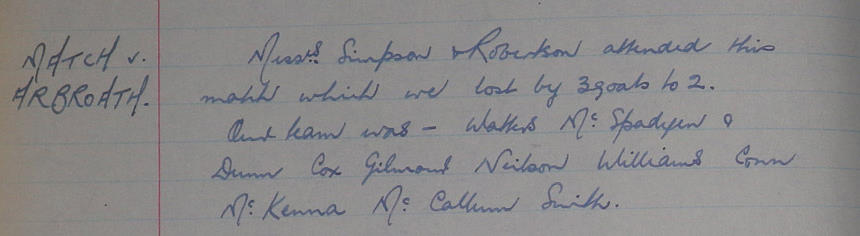 MATCH v.
ARBROATH.
Messrs Simpson & Robertson attended this
match which we lost by 3 goals to 2.
Our team was – Watters McSpadyen &
Dunn Cox Gilmour Neilson Williams Conn
McKenna McCallum Smith.